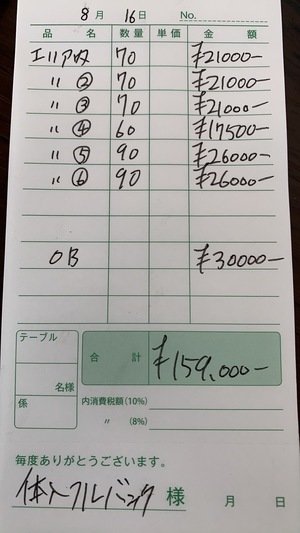 8月 16日 No.
品名 数量 単価 金額
エリア 70 ¥21000-
〃 ② 70 ¥21000-
〃 ③ 70 ¥21000-
〃 ④ 60 ¥17500-
〃 ⑤ 90 ¥26000-
〃 ⑥ 90 ¥26000-
OB ¥30000-
テーブル
名様
係
合計 ¥159,000-
内消費税額(10%)
〃 (8%)
毎度ありがとうございます。
体入フルバック 様 月 日